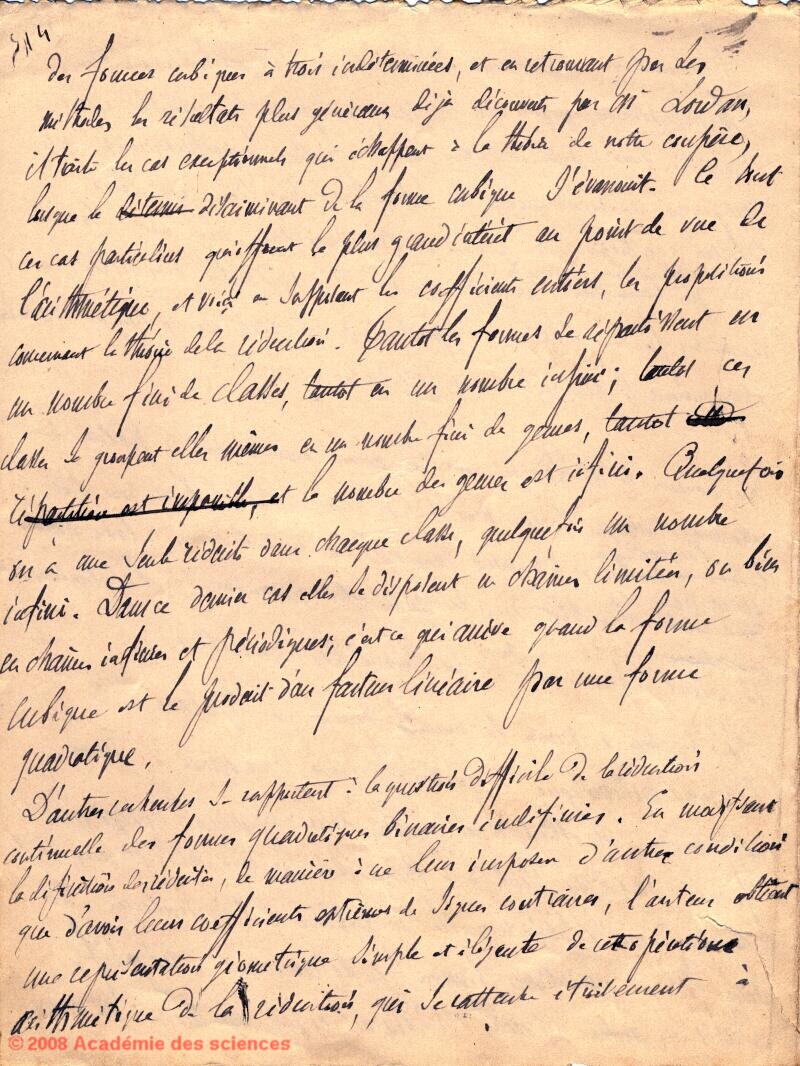 514
des formes cubiques à trois indéterminées, et en retrouvant par des
méthodes les résultats plus généraux déjà découverts par Mr Jordan,
il traite les cas exceptionnels qui échappent à la théorie de notre confrère,
lorsque le discriminant de la forme cubique s'évanouit. Ce sont
ces cas particuliers qui offrent le plus grand intérêt au point de vue de
l'arithmétique, et voici en supposant les coefficients entiers, les propositions
concernant la théorie de la réduction. Tantôt les formes se répartissent en
un nombre fini de classes, tantôt en un nombre infini; tantôt ces
classes se groupent elles mêmes en un nombre fini de genres, tantôt
répartition est impossible, et le nombre des genres est infini. Quelquefois
on a une seule réduite dans chaque classe, quelquefois un nombre
infini. Dans ce dernier cas elles se disposent en chaînes limitées, ou bien
en chaînes infinies et périodiques; c'est ce qui arrive quand la forme
cubique est le produit d'un facteur linéaire par une forme
quadratique.
D'autres recherches se rapportent à la question difficile de la réduction
continuelle des formes quadratiques binaires indéfinies. En modifiant
la définition des réduites, de manière à ne leur imposer d'autre condition
que d'avoir leurs coefficients extrêmes de signes contraires, l'auteur obtient
une représentation géométrique simple et élégante de cette opération
arithmétique de la réduction, qui se rattache étroitement à
© 2008 Académie des sciences